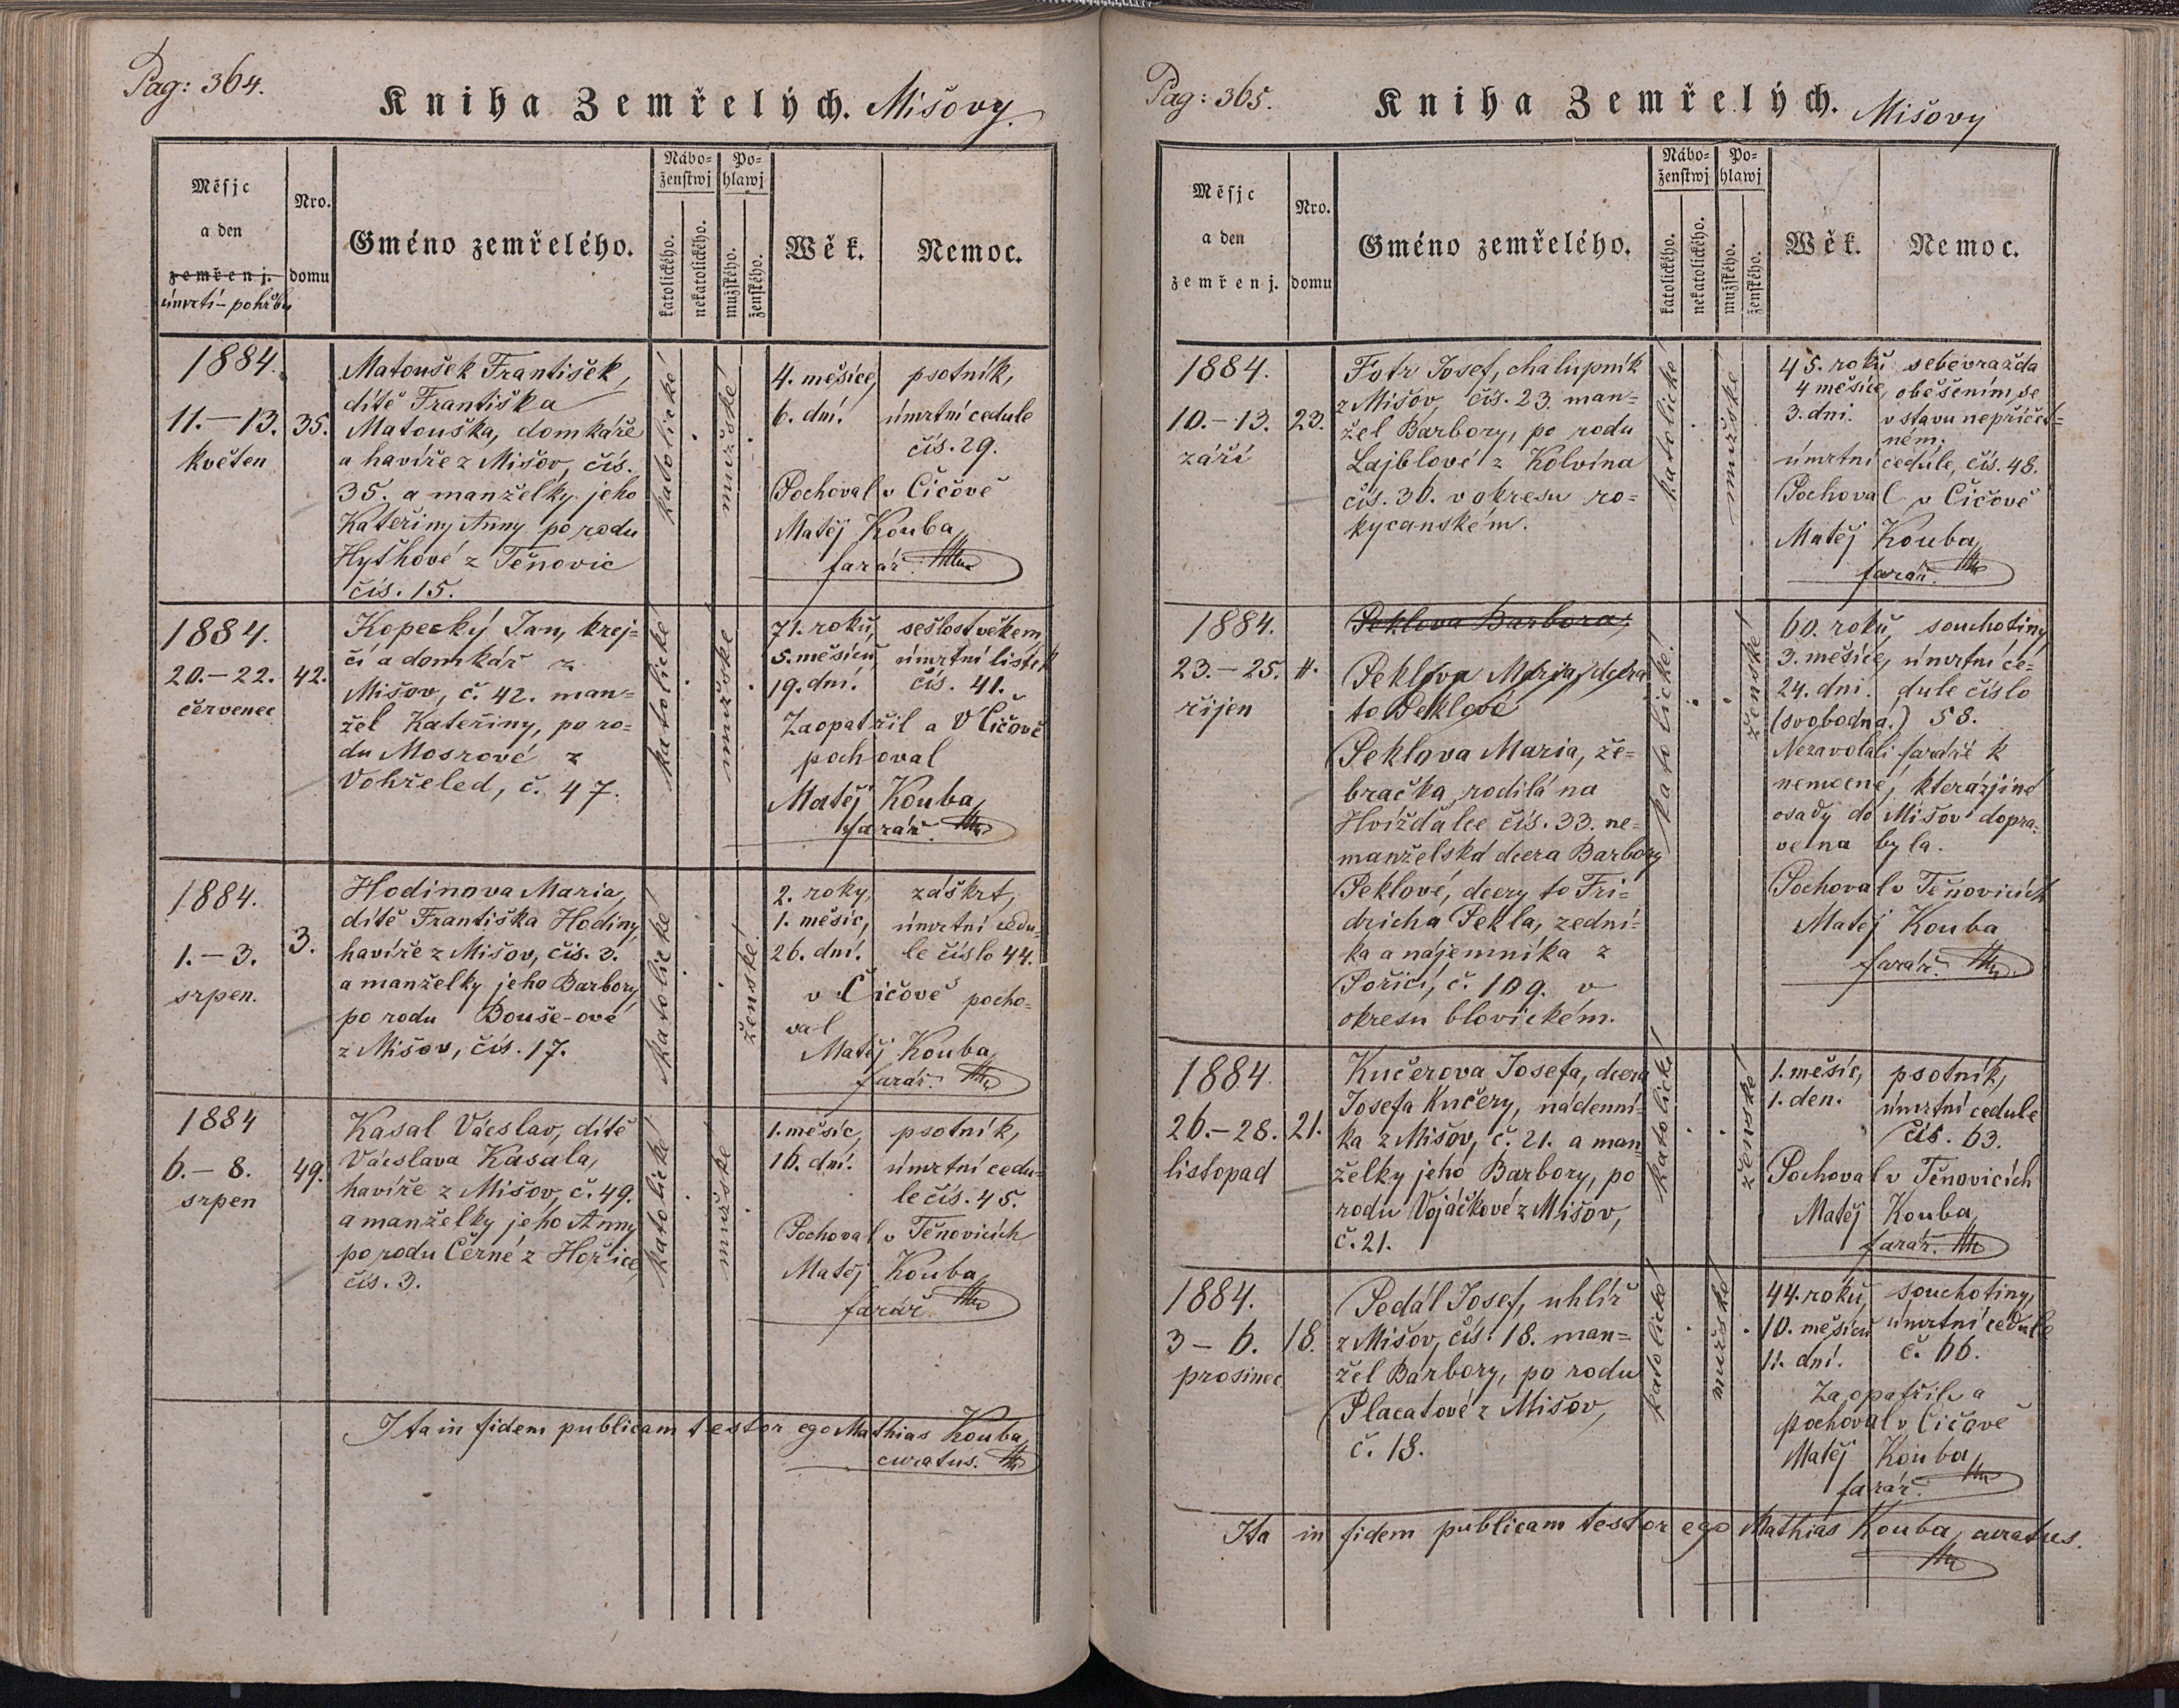 Pag: 364.
Kniha Zemřelých. Mišovy.
Měsjc
a den
zemřenj.
úmrtí – pohřbu
Nro.
domu
Gméno zemřelého.
Nábo=
ženstwj
katolického.
nekatolického.
Po=
hlawj
mužského.
ženského.
Wěk.
Nemoc.
1884.
11.–13.
květen
35.
Matoušek František,
dítě Františka
Matouška, domkáře
a havíře z Mišov, čís.
35. a manželky jeho
Kateřiny Anny po rodu
Hyťhové z Těnovic
čís. 15.
katolické!
mužské!
4. měsíce,
6. dní.
psotník,
úmrtní cedule
čís. 29.
Pochoval v Čičově
Matěj Kouba,
farář.
1884.
20.–22.
červenec
42.
Kopecký Jan, krej=
čí a domkář z
Mišov, č. 42. man=
žel Kateřiny, po ro=
du Mosrové z
Vohřeled, č. 47.
katolické!
mužské
71. roků,
5. měsíců,
19. dní.
sešlost věkem,
úmrtní lístek
čís. 41.
Zaopatřil a v Čičově
pochoval
Matěj Kouba,
farář.
1884.
1.–3.
srpen.
3.
Hodinova Maria,
dítě Františka Hodiny,
havíře z Mišov, čís. 3.
a manželky jeho Barbory,
po rodu Bouše-ové
z Mišov, čís. 17.
katolické!
ženské!
2. roky,
1. měsíc,
26. dní.
záškrt,
úmrtní cedu=
le číslo 44.
v Čičově pocho=
val
Matěj Kouba,
farář.
1884
6.–8.
srpen
49.
Kasal Vácslav, dítě
Vácslava Kasala,
havíře z Mišov, č. 49.
a manželky jeho Anny
po rodu Černé z Hořice,
čís. 3.
katolické!
mužské
1. měsíc,
16. dní.
psotník,
úmrtní cedu=
le čís. 45.
Pochoval v Těnovicích
Matěj Kouba,
farář.
Ita in fidem publicam testor ego Mathias Kouba,
curatus.
Pag: 365.
Kniha Zemřelých. Mišovy
Měsjc
a den
zemřenj.
Nro.
domu
Gméno zemřelého.
Nábo=
ženstwj
katolického.
nekatolického.
Po=
hlawj
mužského.
ženského.
Wěk.
Nemoc.
1884.
10.–13.
září
23.
Fotr Josef, chalupník
z Mišov, čís. 23. man=
žel Barbory, po rodu
Lajblové z Kolvína
čís. 36. v okresu ro=
kycanském.
katolické!
mužské!
45. roků
4 měsíce,
3. dni.
sebevražda
oběšením se
v stavu nepříčet=
ném.
úmrtní cedule, čís. 48.
Pochoval v Čičově
Matěj Kouba,
farář.
1884.
23.–25.
říjen
4.
Peklova Barbora,
Peklova Maria, dcera
to Peklové
Peklova Maria, že=
bračka, rodilá na
Hvíždalce čís. 33. ne=
manželská dcera Barbory
Peklové, dcery to Fri=
dricha Pekla, zední=
ka a nájemníka z
Poříčí, č. 109. v
okresu blovickém.
katolické!
ženské!
60. roků,
3. měsíce,
24. dni.
(svobodná.)
souchotiny,
úmrtní ce=
dule číslo
58.
Nezavolali faráře k
nemocné, která z jiné
osady do Mišov dopra=
vena byla.
Pochoval v Těnovicích
Matěj Kouba
farář.
1884.
26.–28.
listopad
21.
Kučerova Josefa, dcera
Josefa Kučery, nádenní=
ka z Mišov, č. 21. a man=
želky jeho Barbory, po
rodu Vojáčkové z Mišov,
č. 21.
katolické!
ženské!
1. měsíc,
1. den.
psotník,
úmrtní cedule
čís. 63.
Pochoval v Těnovicích
Matěj Kouba,
farář.
1884.
3–6.
prosinec
18.
Podál Josef, uhlíř
z Mišov, čís: 18. man=
žel Barbory, po rodu
Placatové z Mišov,
č. 18.
katolické!
mužské!
44. roků,
10. měsíců
11. dní.
souchotiny,
úmrtní cedule
č. 66.
Zaopatřil a
pochoval v Čičově
Matěj Kouba,
farář.
Ita in fidem publicam testor ego Mathias Kouba, curatus.